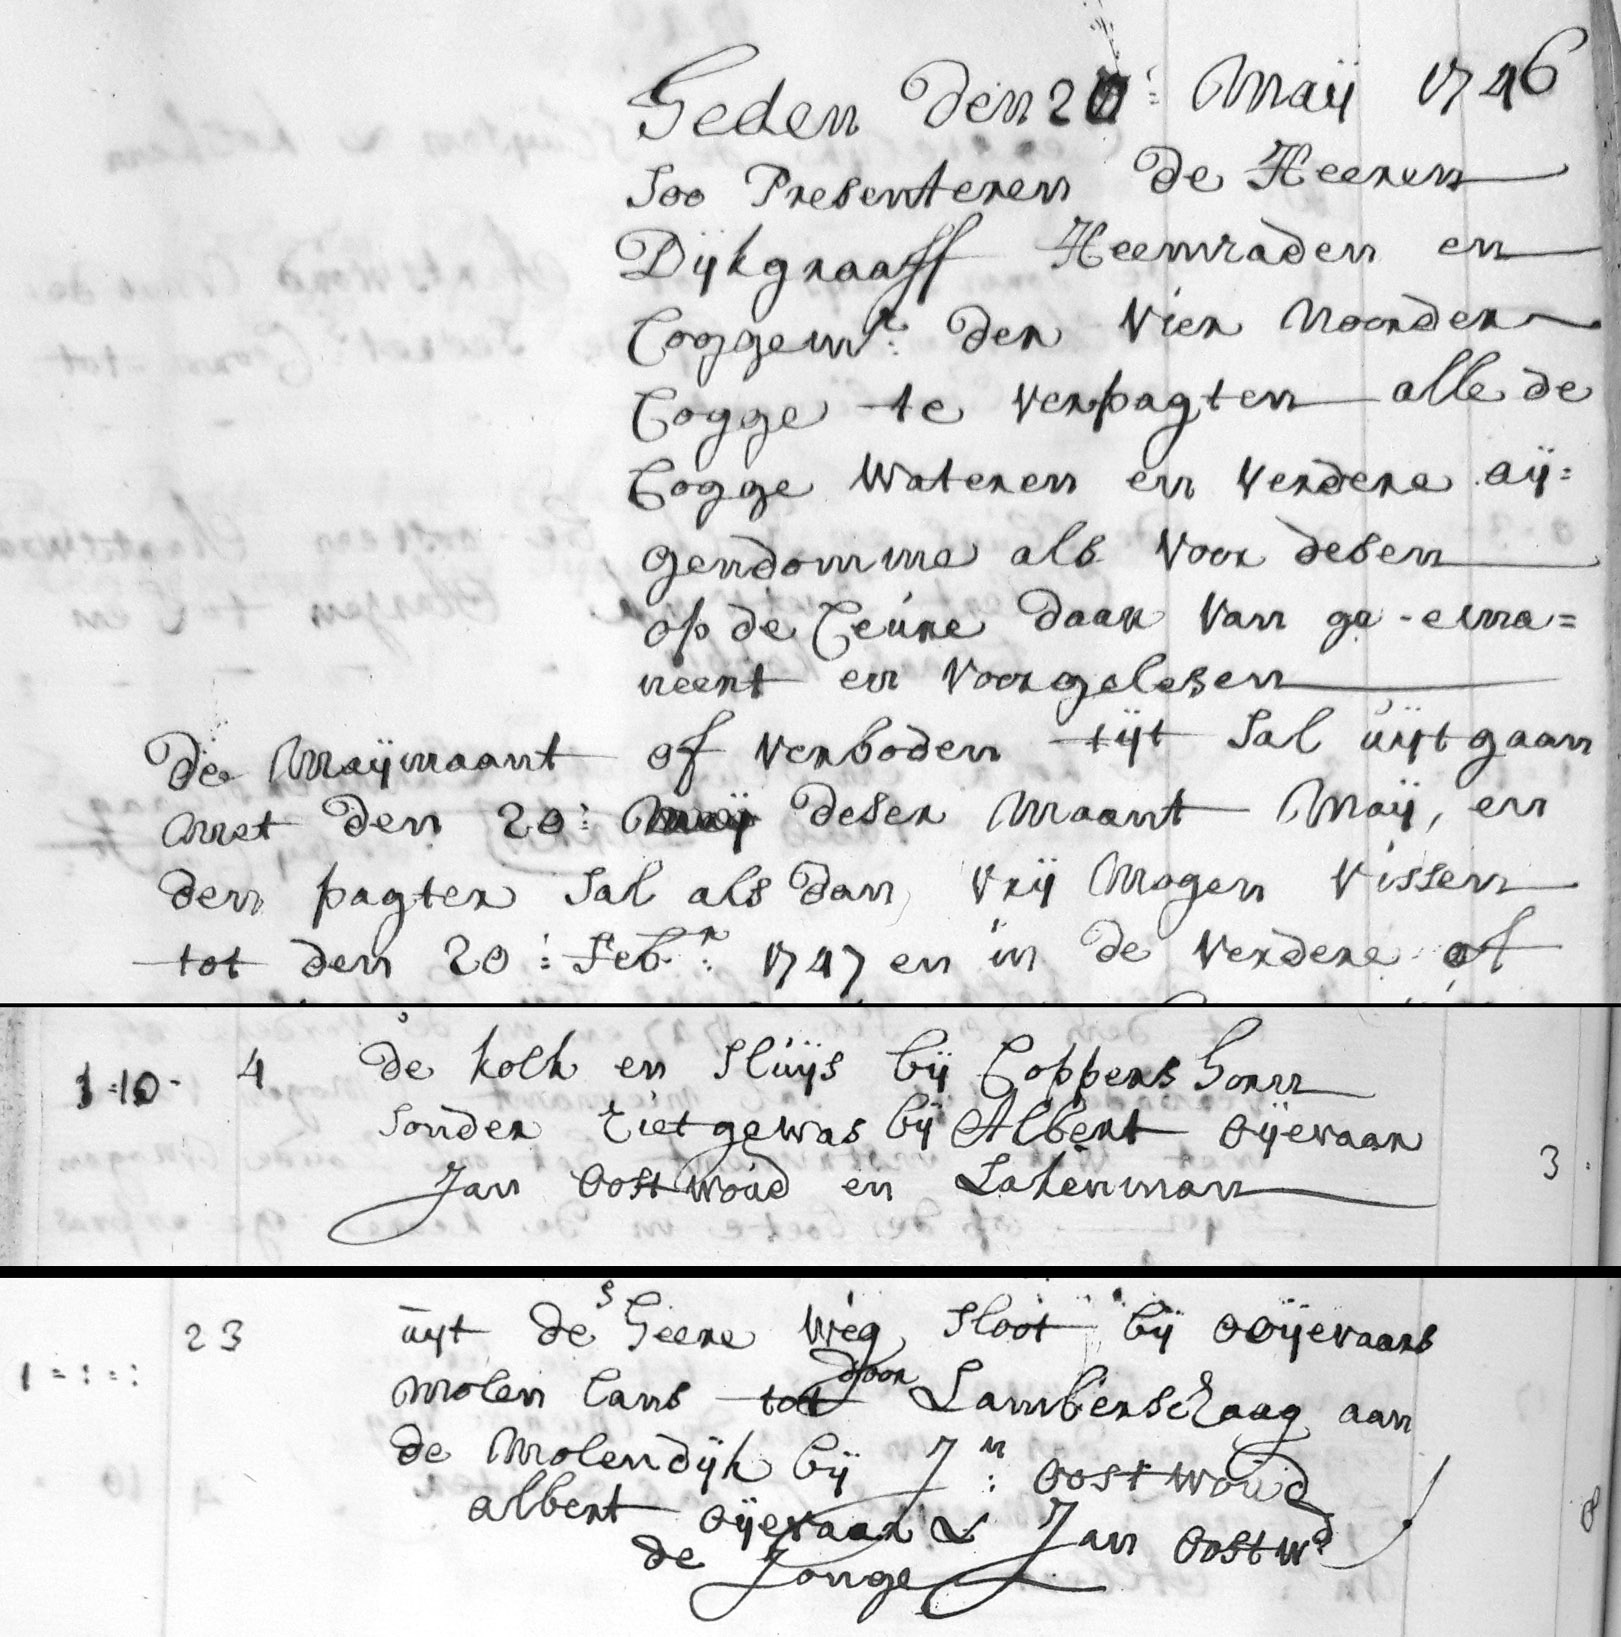 Heden den 20: Maij 1746
Soo Presenteren de Heeren
Dijkgraaff Heemraden en
Coggemr: der vier noorder
Cogge te verpagten alle de
Cogge wateren en verdere aij=
gendomme als voor desen
op de Ceure daar van ge-ema=
neert en voorgelesen
De Maijmaant of verboden tijt sal uijtgaan
met den 20: deser maant Maij, en
den pagter sal als dan vrij mogen vissen
tot den 20: Febr: 1747 en in de verdere of
1-10- 4 de kolk en sluijs bij Coppers horn
sonder rietgewas bij Albert oijevaar
Jan Oostwoud en Lakenman 3
23 uijt de Heere weg sloot bij ooijevaars
1=:=: molen lans door Lamberschaag aan
de Molendijk bij Jn: Oostwoud
albert oijevaar & Jan Oostwd
de Jonge 8